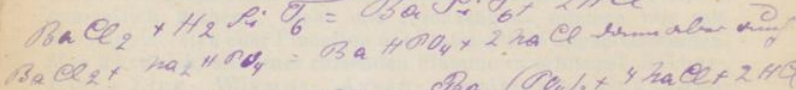 BaCl2 + H2SiF6 = BaSiF6 + 2HCl
BaCl2 + na2HPO4 = BaHPO4 + 2naCl dann aber
(PO4)2 + 4naCl + 2HCl